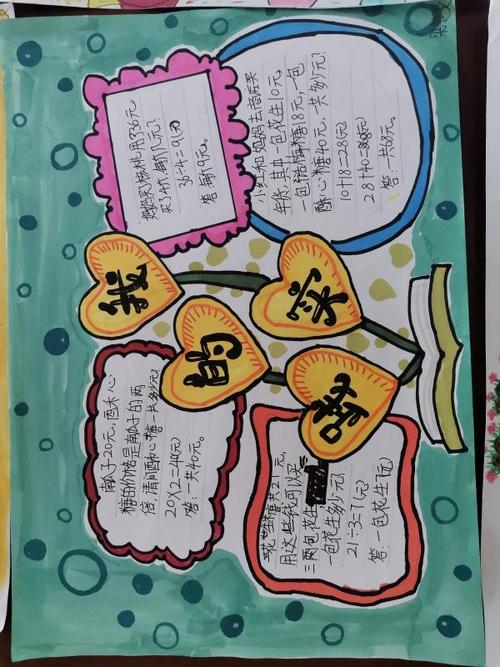 妈妈买核桃用了36元
买了4斤,每斤几元?
36÷4=9(元)
答:每斤9元。
小红和妈妈去商店买
年货,其中一包花生10元,
一包18元,一包
酥心糖40元,一共多少元?
10+18=28(元)
28+40=68(元)
答:一共68元。
我的实
南瓜子20元,酥心
糖的价格是南瓜子的两
倍,请问酥心糖一共多少元?
20×2=40(元)
答:一共40元。
用这些钱可以买
一包花生多少元?
21÷3=7(元)
答:一包花生7元